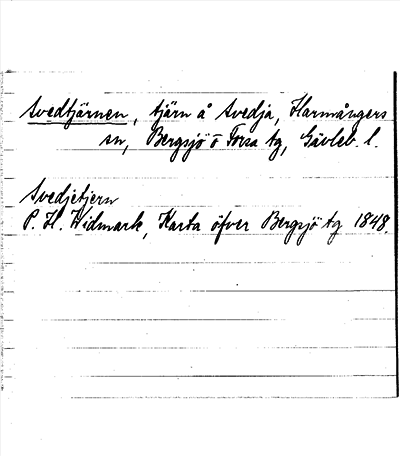 Svedtjärnen, tjärn å Svedja, Harmångers
sn, Bergsjö o Forsa tg, Gävleb. l.
Svedjetjern
P. H. Widmark, Karta öfver Bergsjö tg 1848.